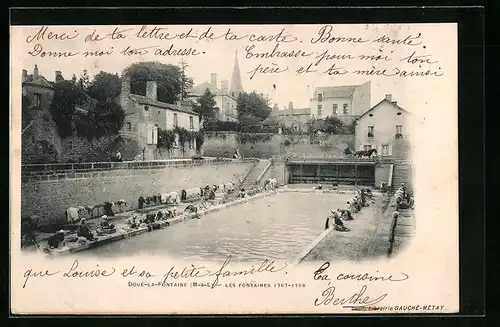 Merci de ta lettre et de ta carte. Bonne santé
Donne moi ton adresse. Embrasse pour moi ton
père et ta mère ainsi
que Louise et sa petite famille. Ta cousine
Berthe
DOUÉ-LA-FONTAINE (M-&-L) — LES FONTAINES 1767-1768
Librairie GAUCHÉ-MÉTAY